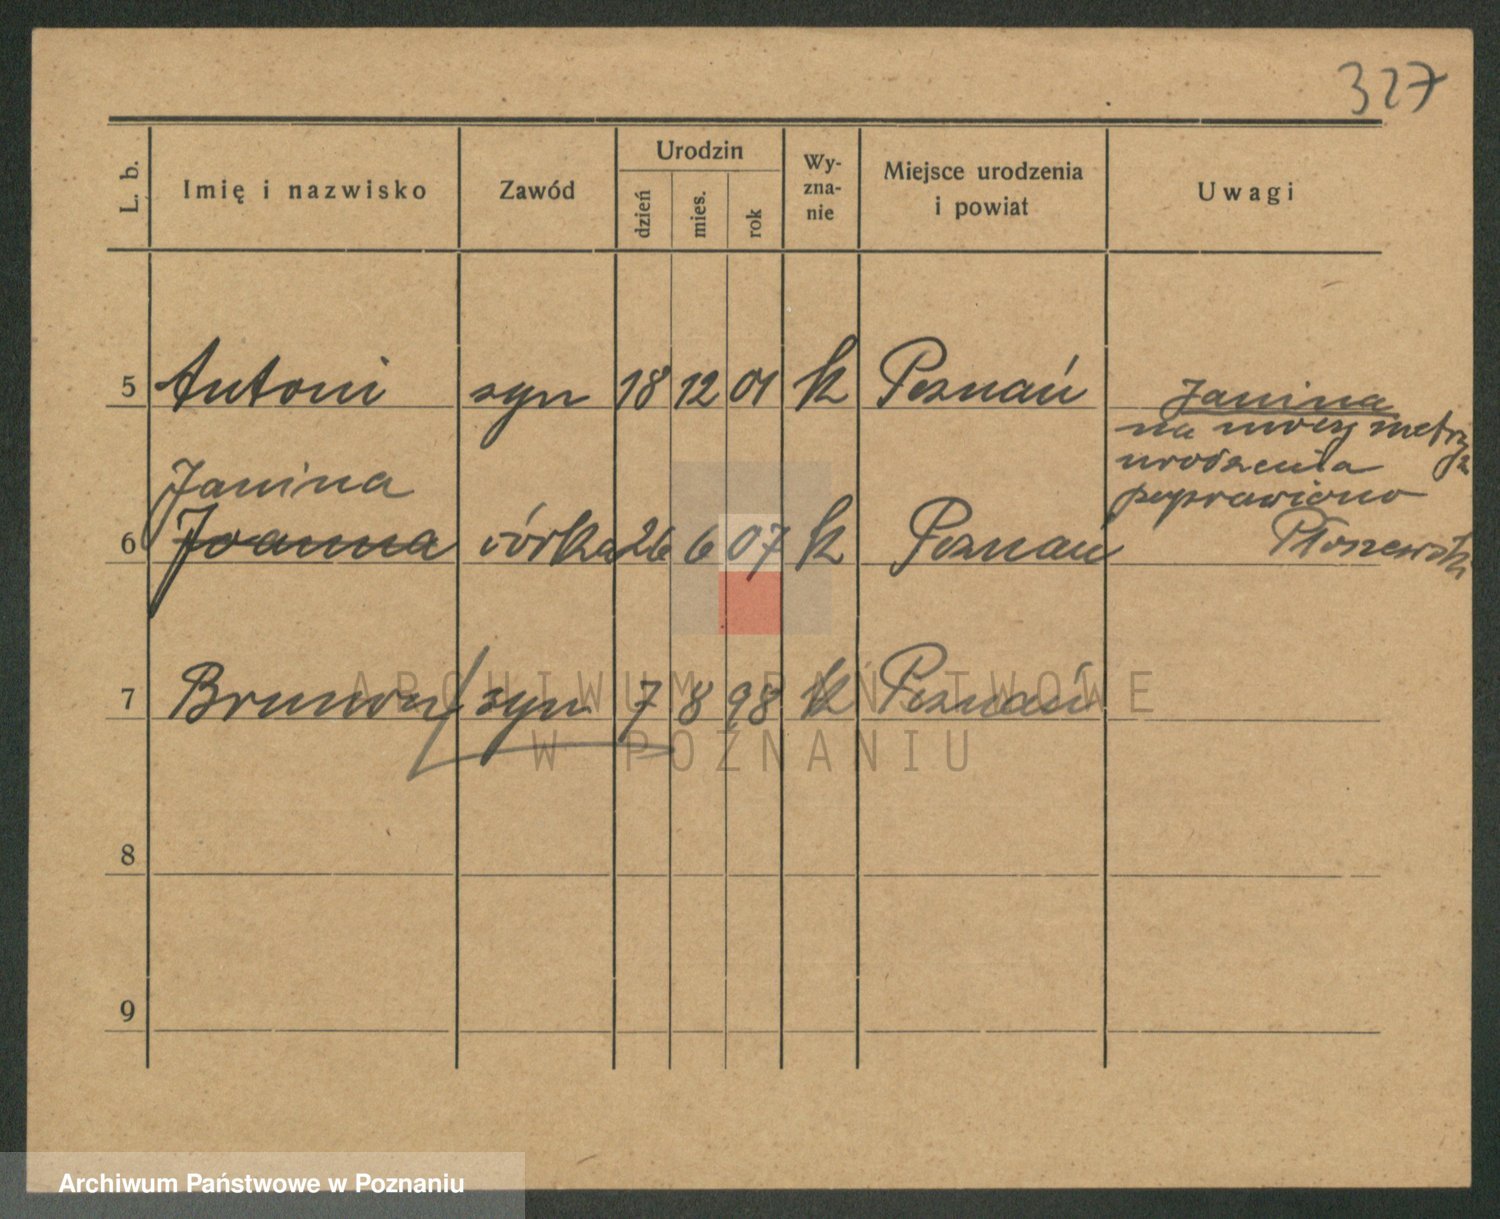 327
L. b. Imię i nazwisko Zawód Urodzin dzień mies. rok Wy-zna-nie Miejsce urodzenia i powiat Uwagi
5 Antoni syn 18 12 01 k Poznań
Janina
na mocy metryz
urodzenia
poprawiono
Janina
6 Joanna córka 26 6 07 k Poznań
7 Brunon syn 7 8 98 k Poznań
ARCHIWUM PAŃSTWOWE
W POZNANIU
8
9
Archiwum Państwowe w Poznaniu